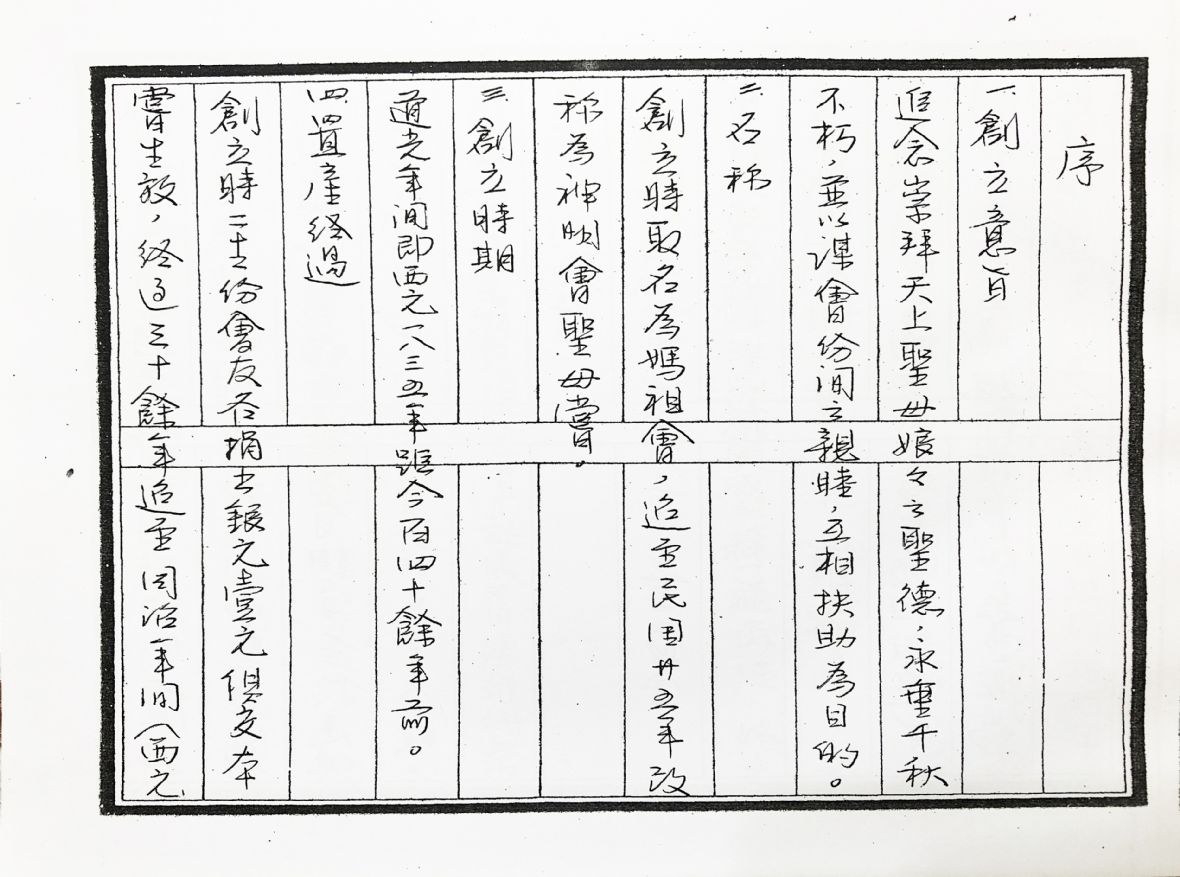 序
一、創立意旨
追念崇拜天上聖母娘々之聖德，永垂千秋
不朽，並以謀會份间之親睦，互相扶助為目的。
二、名称
創立時取名為媽祖會，迨至民国廿五年改
称為神明會聖母嘗。
三、創立時期
道光年间即西元一八三五年距今百四十餘年前。
四、置産経過
創立時二十六份會友各捐出銀元壹元俱交本
嘗生放，経過三十餘年迨至同治年间（西元